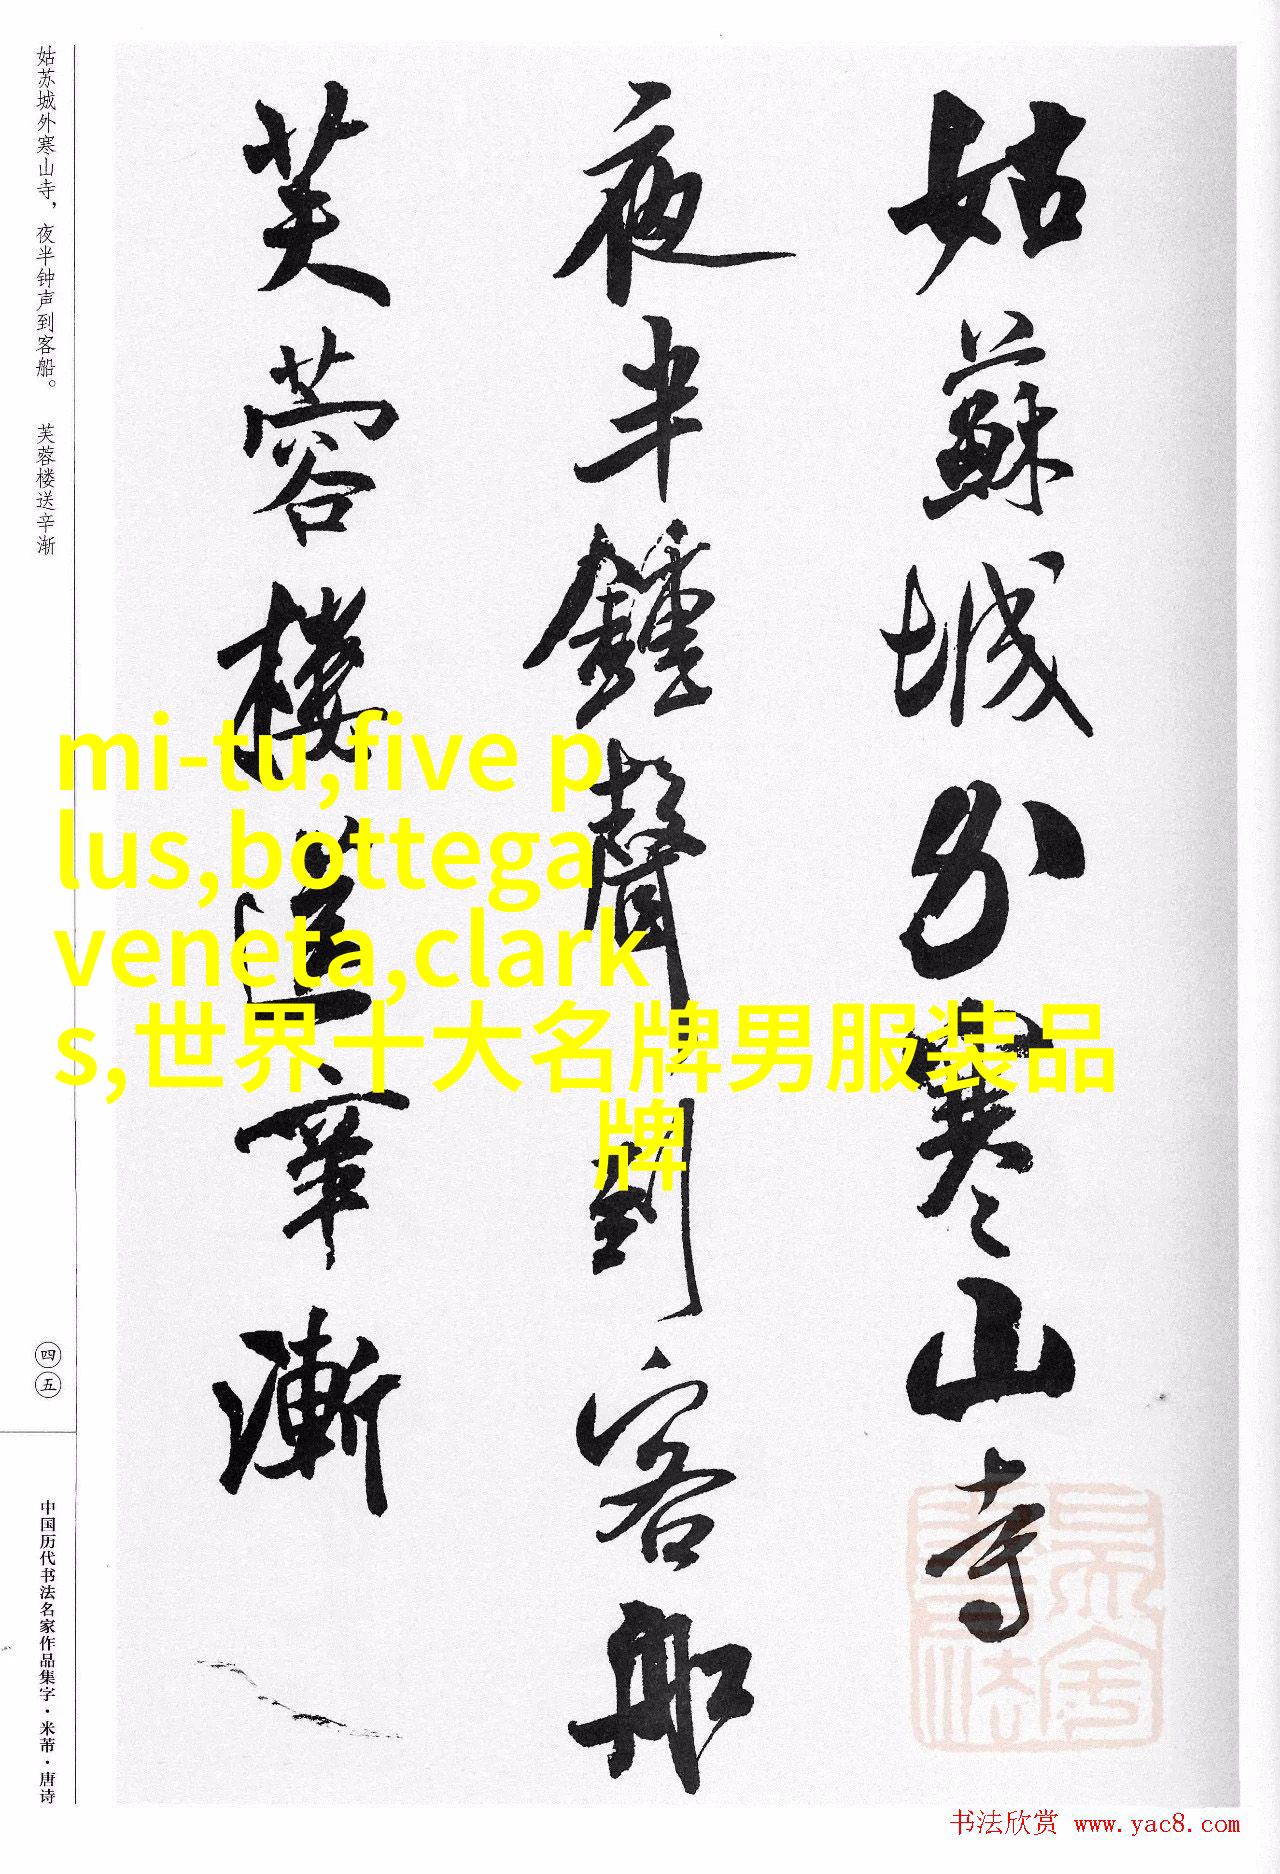 姑蘇城外寒山寺
夜半鍾聲到客船
芙蓉樓送辛漸
姑苏城外寒山寺，夜半钟声到客船。 芙蓉楼送辛渐
四五
中国历代书法名家作品集字·米芾·唐诗
mi-tu,five p
lus,bottega
veneta,clark
s,世界十大名牌男服装品
牌
书法欣赏 www.yac8.com